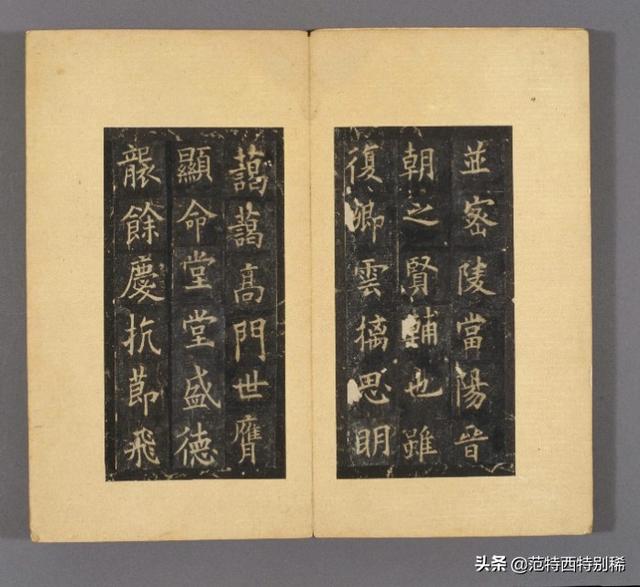 並宻陵當陽晉
朝之賢輔也雖
復卿雲摛思明
藹藹高門世膺
顯命堂堂盛德
襲餘慶抗節飛
头条 @范特西特别稀